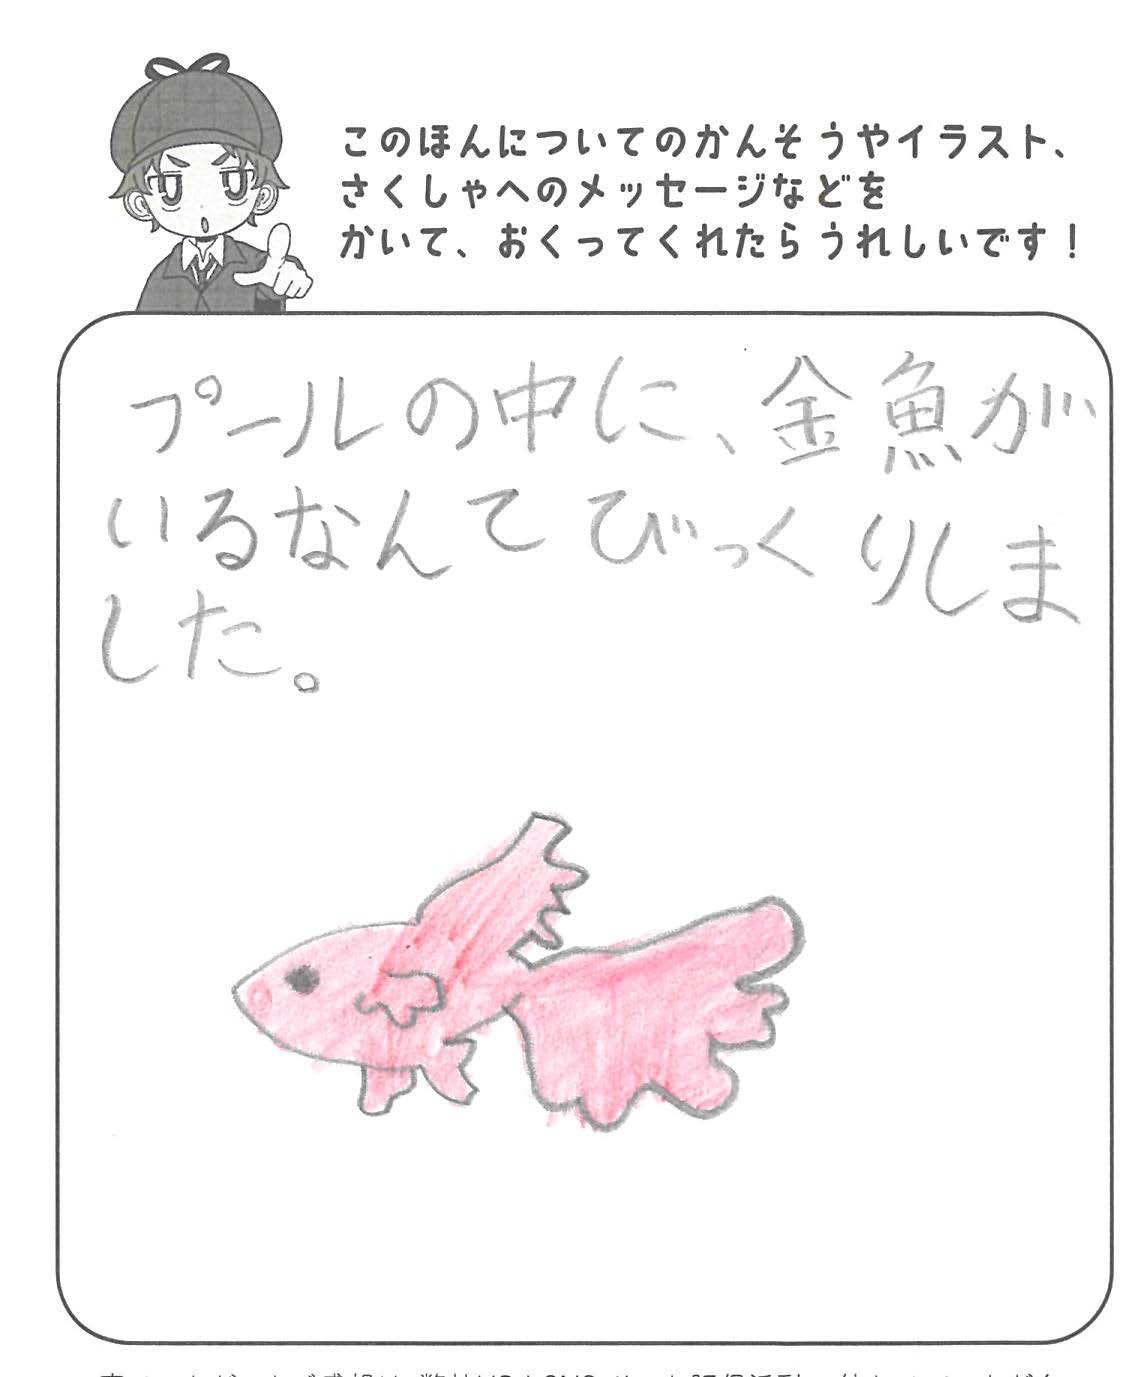 このほんについてのかんそうやイラスト、
さくしゃへのメッセージなどを
かいて、おくってくれたらうれしいです！
プールの中に、金魚が
いるなんてびっくりしま
した。